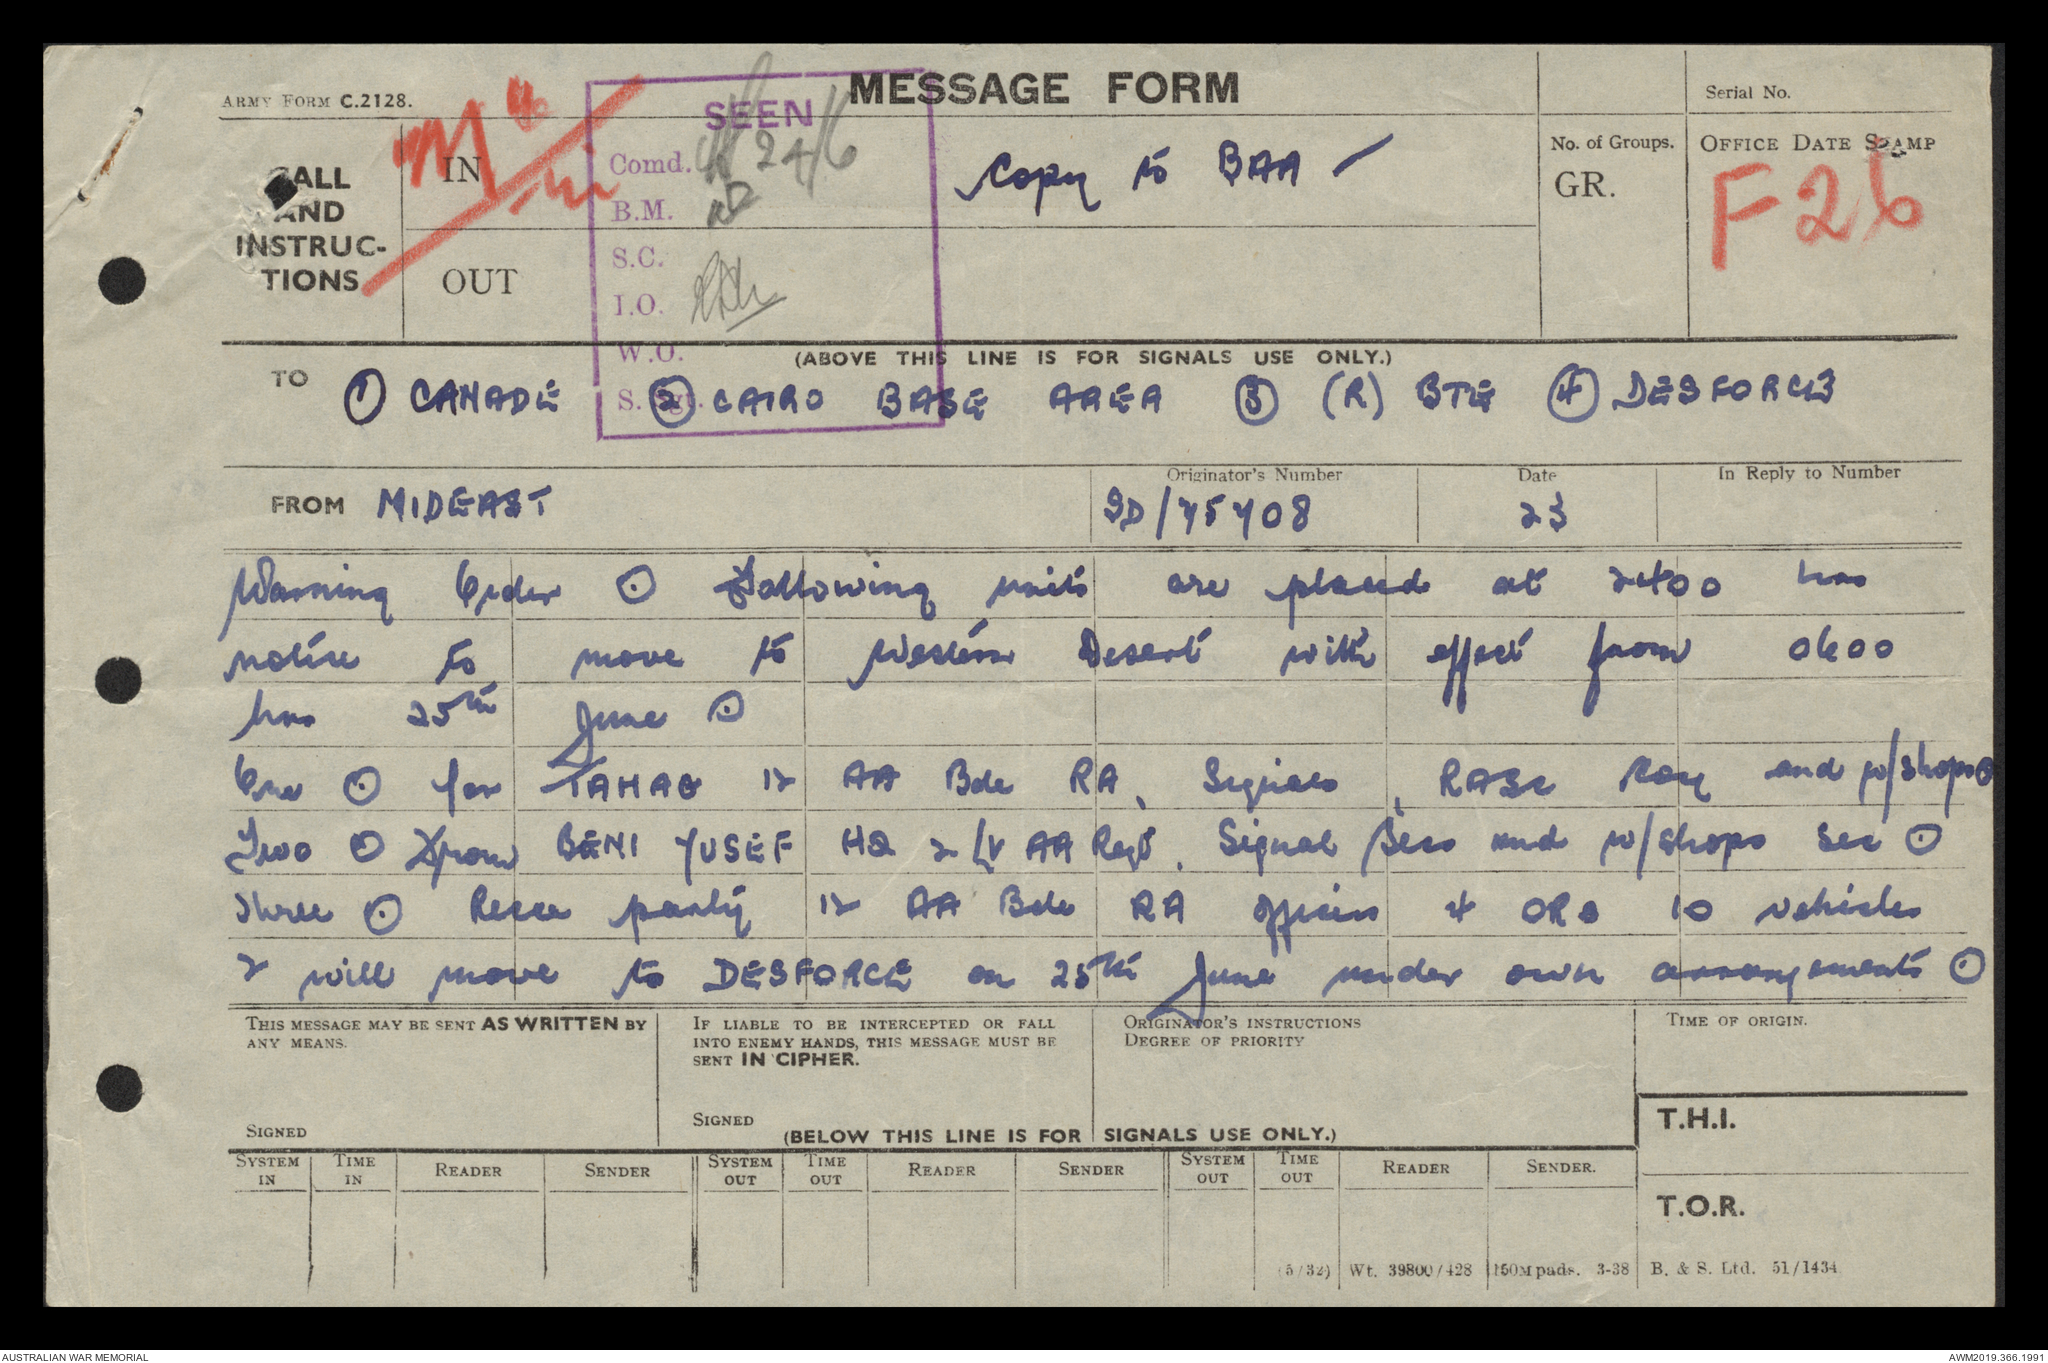 MESSAGE FORM
ARMY FORM C.2128.
Serial No.
CALL
AND
INSTRUC-
TIONS
IN
OUT
SEEN
Comd. 24/6
B.M.
S.C.
I.O.
W.O.
S. Sgt.
Copy to BAA
No. of Groups.
GR.
OFFICE DATE STAMP
F26
(ABOVE THIS LINE IS FOR SIGNALS USE ONLY.)
TO
① CANADE ② CAIRO BASE AREA ③ (R) BTE ④ DESFORCE
FROM MIDEAST
Originator's Number
SD/75708
Date
23
In Reply to Number
Warning Order ⊙ Following units are placed at 2400 hrs
notice to move to Western Desert with effect from 0600
hrs 25th June ⊙
One ⊙ for TAHAG 12 AA Bde RA, Signals, RASC Coy and w/shops ⊙
Two ⊙ from BENI YUSEF HQ 2 LV AA Regt. Signal Secs and w/shops Sec ⊙
Three ⊙ Recce party 12 AA Bde RA officers 4 ORs 10 vehicles
2 will move to DESFORCE on 25th June under own arrangements ⊙
THIS MESSAGE MAY BE SENT AS WRITTEN BY
ANY MEANS.
SIGNED
IF LIABLE TO BE INTERCEPTED OR FALL
INTO ENEMY HANDS, THIS MESSAGE MUST BE
SENT IN CIPHER.
SIGNED
ORIGINATOR'S INSTRUCTIONS
DEGREE OF PRIORITY
TIME OF ORIGIN.
T.H.I.
T.O.R.
(BELOW THIS LINE IS FOR SIGNALS USE ONLY.)
SYSTEM IN
TIME IN
READER
SENDER
SYSTEM OUT
TIME OUT
READER
SENDER
SYSTEM OUT
TIME OUT
READER
SENDER.
(5/32) Wt. 39800/428 150M pads. 3-38 B. & S. Ltd. 51/1434
AUSTRALIAN WAR MEMORIAL
AWM2019.366.1991